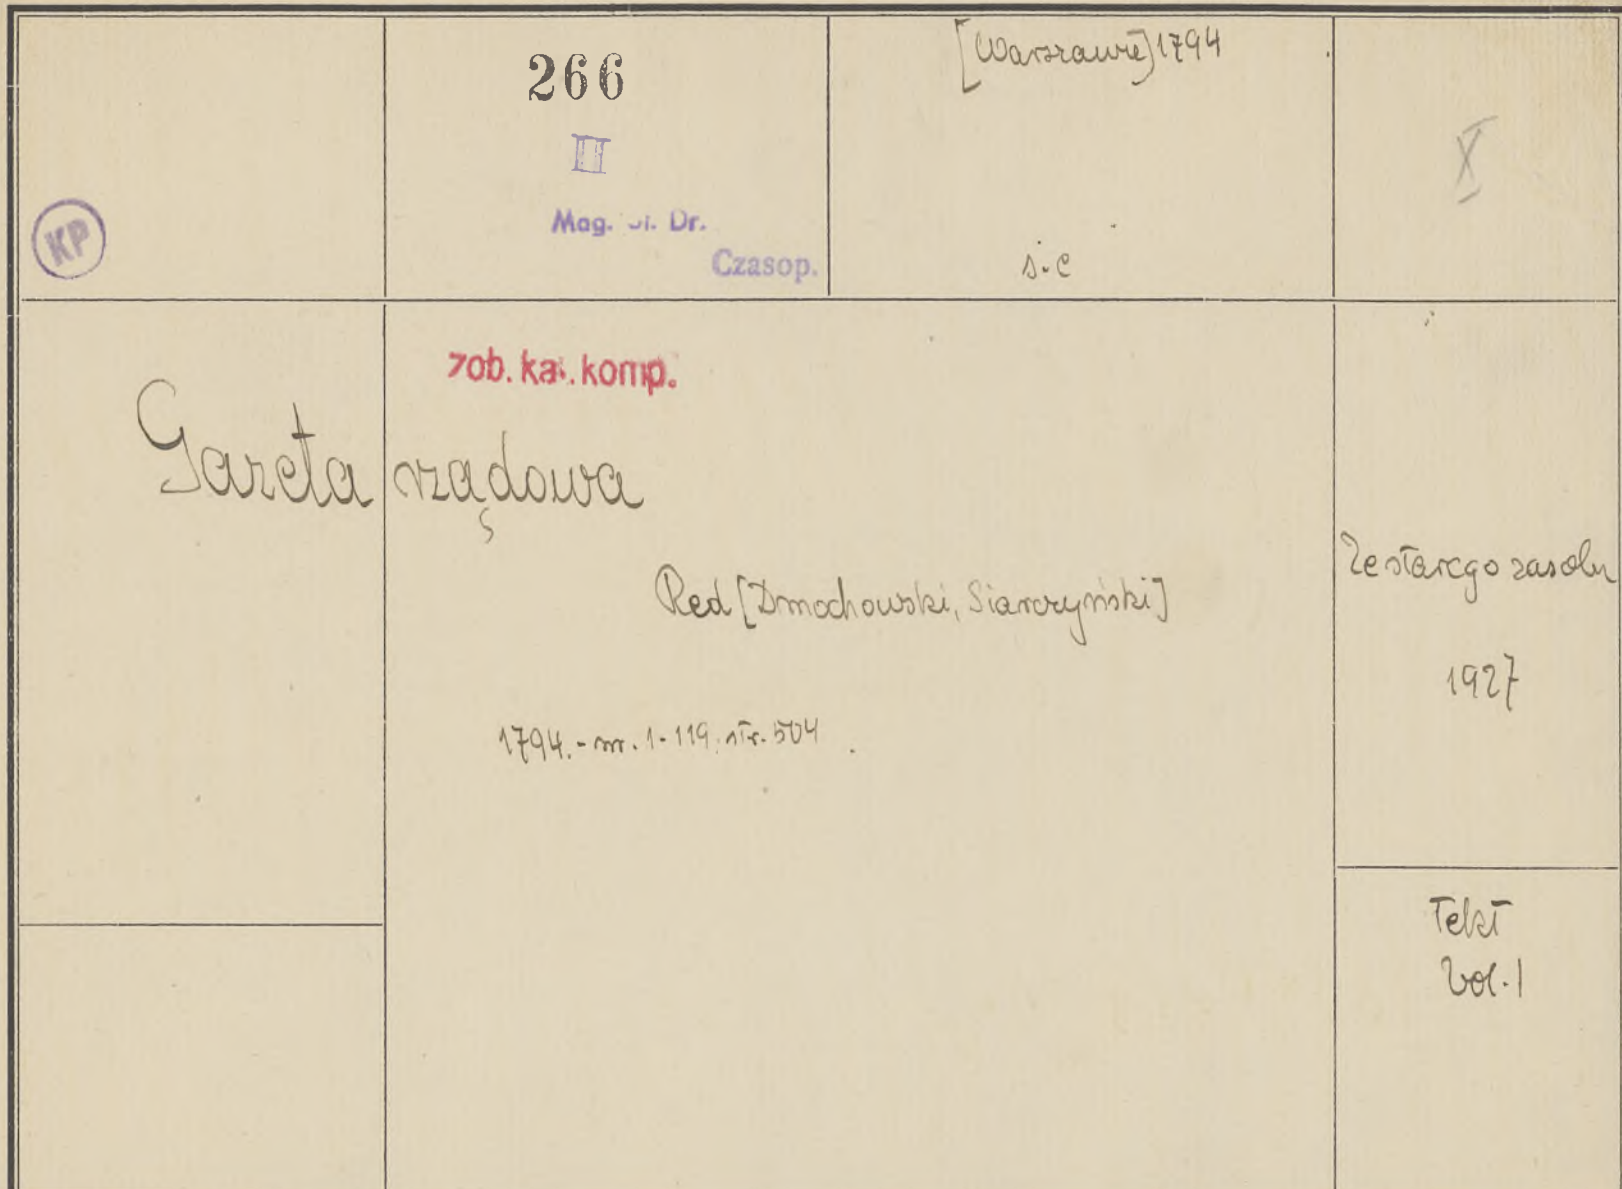 266
II
Mag. St. Dr.
Czasop.
[Warszawie] 1794
X
KP
s. c
zob. kat. komp.
Gazeta rządowa
Red [Dmochowski, Siarczyński]
1794.- nr. 1-119. str. 504
Ze starego zasobu
1927
Tekst
Vol. 1